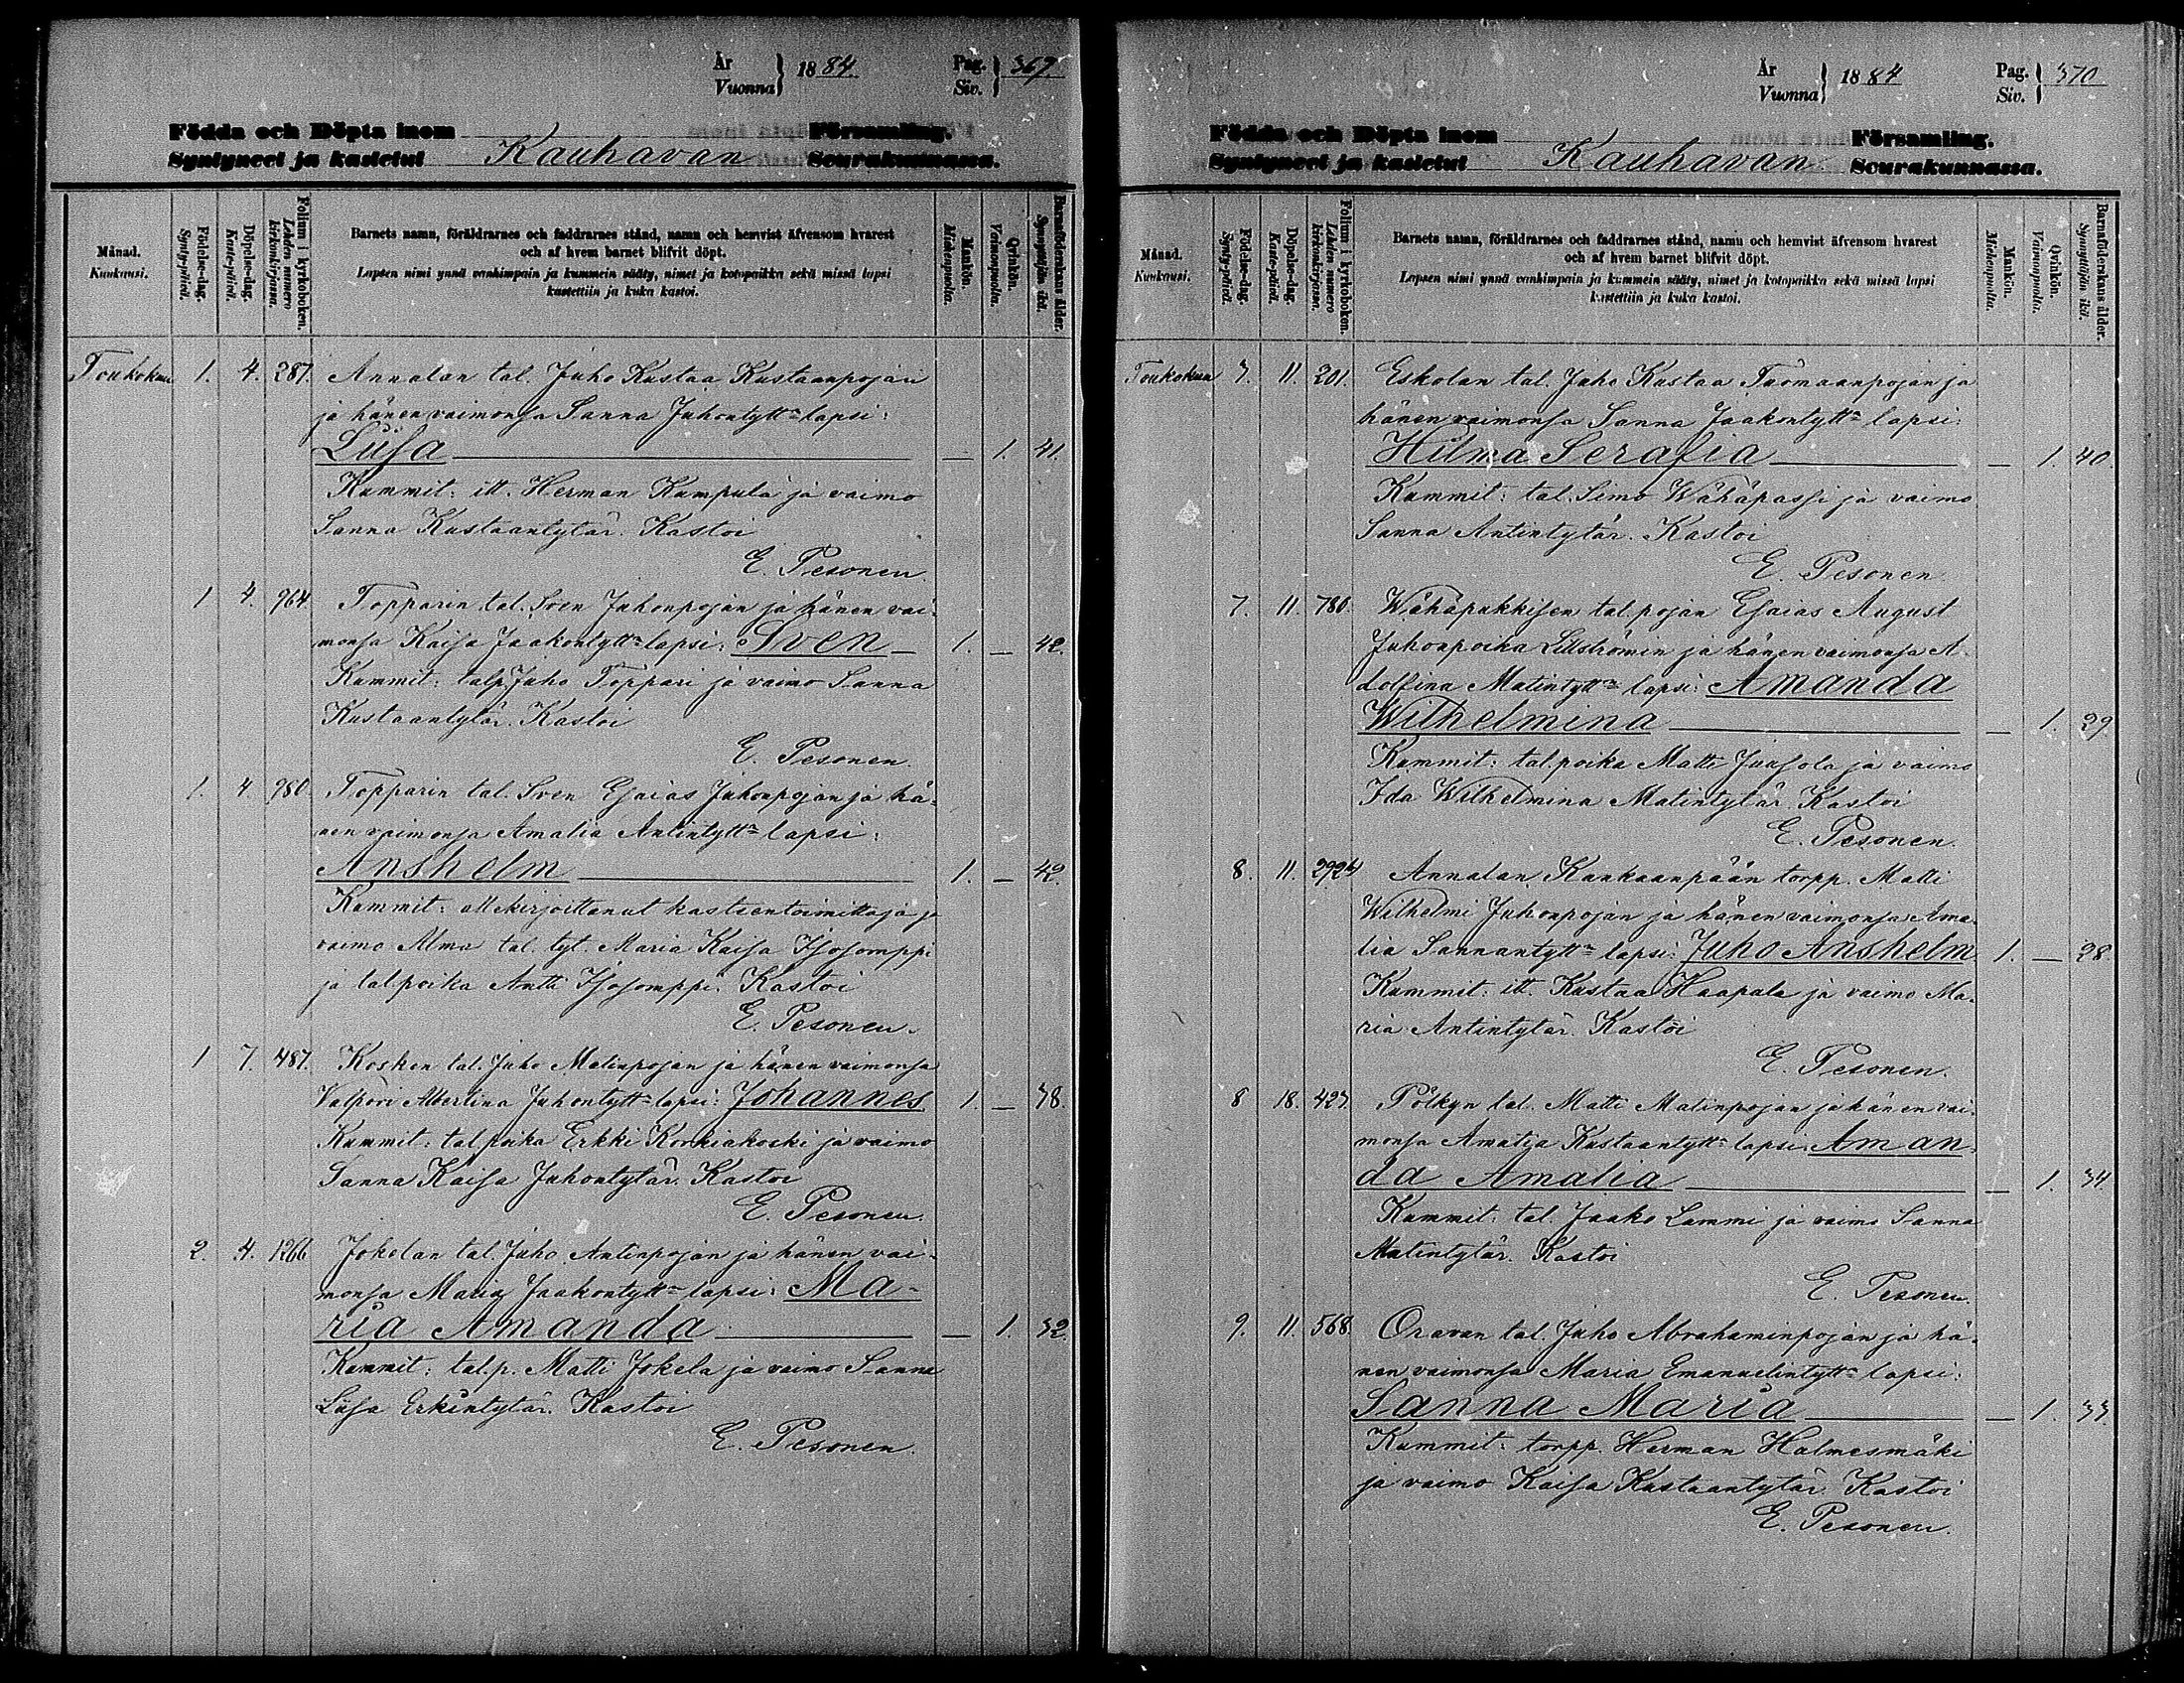 År
Vuonna } 1884. Pag.
Siv. } 369.
Födda och Döpta inom Församling.
Syntyneet ja kastetut Kauhavan Seurakunnassa.
Månad.
Kuukausi.
Födelse-dag.
Synty-päivä.
Döpelse-dag.
Kaste-päivä.
Folium i kyrkoboken.
Lehden numero
kirkonkirjassa.
Barnets namn, föräldrarnes och faddrarnes stånd, namn och hemvist äfvensom hvarest
och af hvem barnet blifvit döpt.
Lapsen nimi ynnä vanhimpain ja kummein sääty, nimet ja kotopaikka sekä missä lapsi
kastettiin ja kuka kastoi.
Mankön.
Miehenpuolta.
Qvinkön.
Vaimonpuolta.
Barnaföderskans ålder.
Synnyttäjän ikä.
Toukokuu 1. 4. 287. Annalan tal. Juho Kustaa Kustaanpojan
ja hänen vaimonsa Sanna Juhontytt:n lapsi:
Liisa — 1. 41.
Kummit: itt. Herman Kumpula ja vaimo
Sanna Kustaantytär. Kastoi
E. Pesonen.
1 4. 964. Topparin tal. Sven Juhonpojan ja hänen vai-
monsa Kaisa Jaakontytt:n lapsi: Sven 1. — 42.
Kummit: talp. Juho Toppari ja vaimo Sanna
Kustaantytär. Kastoi
E. Pesonen.
1. 4. 980. Topparin tal. Sven Esaias Juhonpojan ja hä-
nen vaimonsa Amalia Antintytt:n lapsi:
Anshelm 1. — 42.
Kummit: allekirjoittanut kasteentoimittaja ja
vaimo Alma tal. tyt. Maria Kaisa Isosomppi
ja tal.poika Antti Isosomppi. Kastoi
E. Pesonen.
1 7. 487. Kosken tal. Juho Matinpojan ja hänen vaimonsa
Valpori Albertina Juhontytt:n lapsi: Johannes 1. — 38.
Kummit: tal.poika Erkki Korkiakoski ja vaimo
Sanna Kaisa Juhontytär. Kastoi
E. Pesonen.
2. 4. 1266 Jokelan tal. Juho Antinpojan ja hänen vai-
monsa Maria Jaakontytt:n lapsi: Ma-
ria Amanda — 1. 32.
Kummit: tal.p. Matti Jokela ja vaimo Sanna
Liisa Erkintytär. Kastoi
E. Pesonen.
År
Vuonna } 1884 Pag.
Siv. } 370
Födda och Döpta inom Församling.
Syntyneet ja kastetut Kauhavan Seurakunnassa.
Månad.
Kuukausi.
Födelse-dag.
Synty-päivä.
Döpelse-dag.
Kaste-päivä.
Folium i kyrkoboken.
Lehden numero
kirkonkirjassa.
Barnets namn, föräldrarnes och faddrarnes stånd, namn och hemvist äfvensom hvarest
och af hvem barnet blifvit döpt.
Lapsen nimi ynnä vanhimpain ja kummein sääty, nimet ja kotopaikka sekä missä lapsi
kastettiin ja kuka kastoi.
Mankön.
Miehenpuolta.
Qvinkön.
Vaimonpuolta.
Barnaföderskans ålder.
Synnyttäjän ikä.
Toukokuu 7. 11. 201. Eskolan tal. Juho Kustaa Tuomaanpojan ja
hänen vaimonsa Sanna Jaakontytt:n lapsi:
Hilma Serafia — 1. 40.
Kummit: tal. Simo Wähäpassi ja vaimo
Sanna Antintytär. Kastoi
E. Pesonen.
7. 11. 780. Wähäpukkisen tal.pojan Esaias August
Juhonpoika Lillströmin ja hänen vaimonsa A-
dolfina Matintytt:n lapsi: Amanda
Wilhelmina — 1. 29
Kummit: tal.poika Matti Juusola ja vaimo
Ida Wilhelmina Matintytär. Kastoi
E. Pesonen.
8. 11. 292 Annalan Kankaanpään torpp. Matti
Wilhelmi Juhonpojan ja hänen vaimonsa Ama-
lia Sannantytt:n lapsi: Juho Anshelm 1. — 28.
Kummit: itt. Kustaa Haapala ja vaimo Ma-
ria Antintytär. Kastoi
E. Pesonen.
8 18. 423. Pölkyn tal. Matti Matinpojan ja hänen vai-
monsa Amalia Kustaantytt:n lapsi: Aman-
da Amalia — 1. 34.
Kummit: tal. Jaako Lammi ja vaimo Sanna
Matintytär. Kastoi
E. Pesonen.
9. 11. 568. Oravan tal. Juho Abrahaminpojan ja hä-
nen vaimonsa Maria Emanuelintytt:n lapsi:
Sanna Maria — 1. 33.
Kummit: torpp. Herman Halmesmäki
ja vaimo Kaisa Kustaantytär. Kastoi
E. Pesonen.